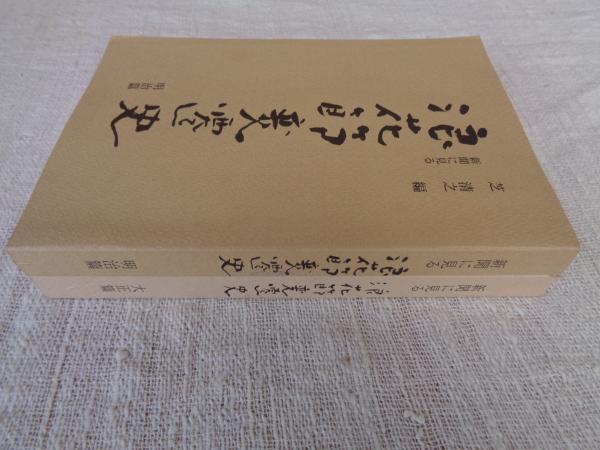 芝 清之 編
新聞に見る
浪花節変遷史
明治篇
新聞に見る 浪花節変遷史 明治篇
新聞に見る 浪花節変遷史 大正篇